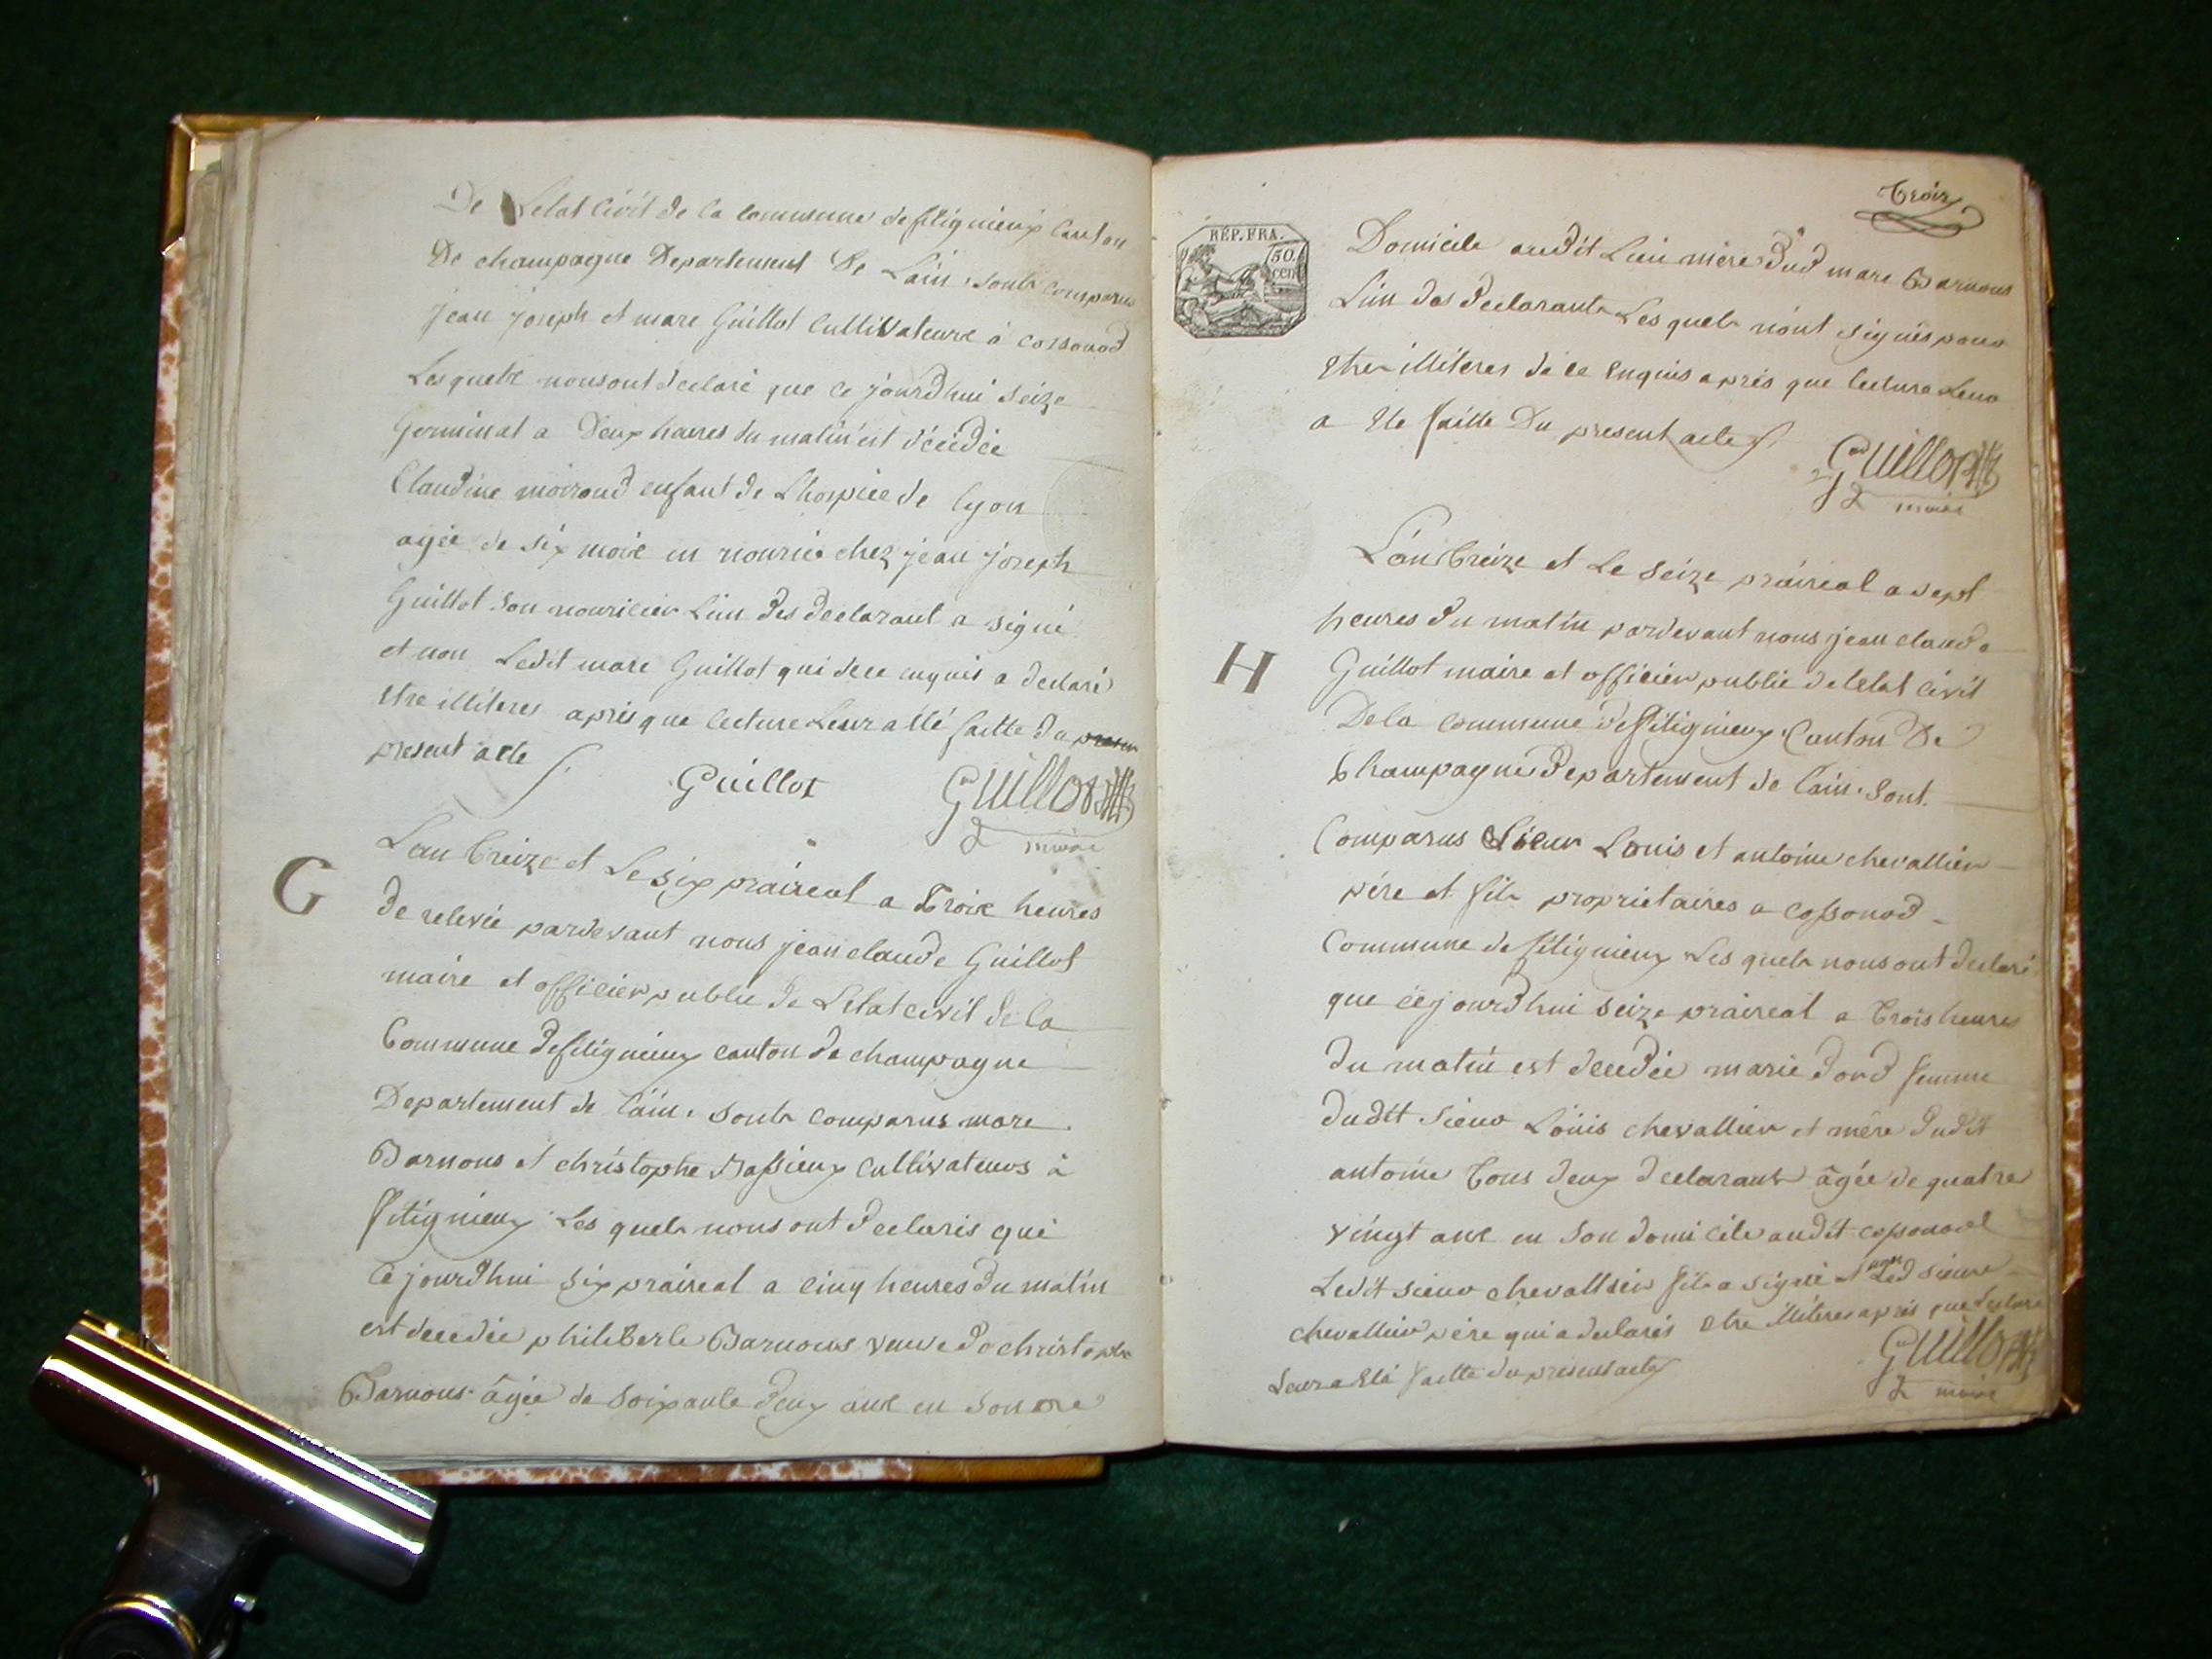 De Letat Civit de la Commune de fitignieux Canton
De champagne Departement De Lain, sonts comparus
jean joseph et marc Guillot Cultivateurs à cossonod
Lesquels nous ont declaré que ce jourdhui seize
Germinal a Deux heures du matin est décédée
Claudine moiroud enfant de Lhospice de lyon
agée de six mois en nourice chez jean joseph
Guillot son nouricier Lun des declarant a signé
et non Ledit marc Guillot qui de ce enquis a declaré
etre illiteres après que lecture Leur a été faitte du
present acte
Guillot
Guillot
maire
G
Lan treize et Le six praireal a Trois heures
de relevée pardevant nous jean claude Guillot
maire et officier public de Letat civit de la
Commune de fitignieux canton de champagne
Departement de Lain, sonts comparus marc
Barnous et christophe Massieux Cultivateurs à
fitignieux Les quels nous ont declarés que
ce jourdhui six praireal a cinq heures du matin
est decedée philiberte Barnous veuve de christophe
Barnous âgée de soixante deux ans en son
Trois
RÉP. FRA.
50.
CEN.
Domicile audit Lieu mère dud marc Barnous
Lun des declarants Les quels n'ont signés pour
etre illiteres de ce enquis après que lecture Leur
a ete faitte Du present acte
Guillot
maire
H
Lan treize et Le seize praireal a sept
heures du matin pardevant nous jean claude
Guillot maire et officier public de letat civit
De la commune de fitignieux Canton De
Champagne Departement de Lain, sont
Comparus Sieur Louis et antoine chevallier
père et fils proprietaires a cossonod
Commune de fitignieux Les quels nous ont declaré
que cejourdhui seize praireal a trois heures
du matin est decedée marie dord femme
dudit sieur Loüis chevallier et mère dudit
antoine tous deux declarants âgée de quatre
vingt ans en son domicile audit cossonod
Ledit sieur chevallier fils a signé et non Led sieur
chevallier père qui a declarés etre illiteres après que lecture
Leur a eté faitte du present acte
Guillot
maire